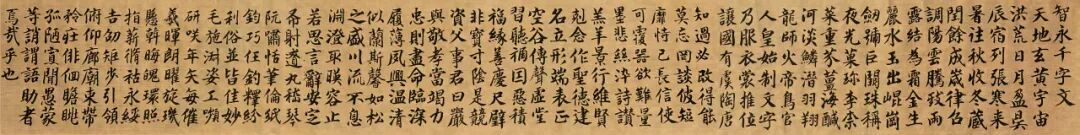 智永千字文
天地玄黃宇宙
洪荒日月盈昃
辰宿列張寒來
暑往秋收冬藏
閏餘成歲律呂
調陽雲騰致雨
露結為霜金生
麗水玉出崑崗
劍號巨闕珠稱
夜光菓珍李柰
菜重芥薑海鹹
河淡鱗潛羽翔
龍師火帝鳥官
人皇始制文字
乃服衣裳推位
讓國有虞陶唐
知過必改得能
莫忘罔談彼短
靡恃己長信使
可覆器欲難量
墨悲絲染詩讚
羔羊景行維賢
剋念作聖德建
名立形端表正
空谷傳聲虛堂
習聽禍因惡積
福緣善慶尺璧
非寶寸陰是競
資父事君曰嚴
與敬孝當竭力
忠則盡命臨深
履薄夙興溫清
似蘭斯馨如松
之盛川流不息
淵澄取映容止
若思言辭安定
希射遼丸嵇琴
阮嘯恬筆倫紙
鈞巧任釣釋紛
利俗並皆佳妙
毛施淑姿工嚬
研咲年矢每催
羲暉朗曜旋璣
懸斡晦魄環照
指薪脩祜永綏
吉劭矩步引領
俯仰廊廟束帶
矜莊徘徊瞻眺
孤陋寡聞愚蒙
等誚謂語助者
焉哉乎也